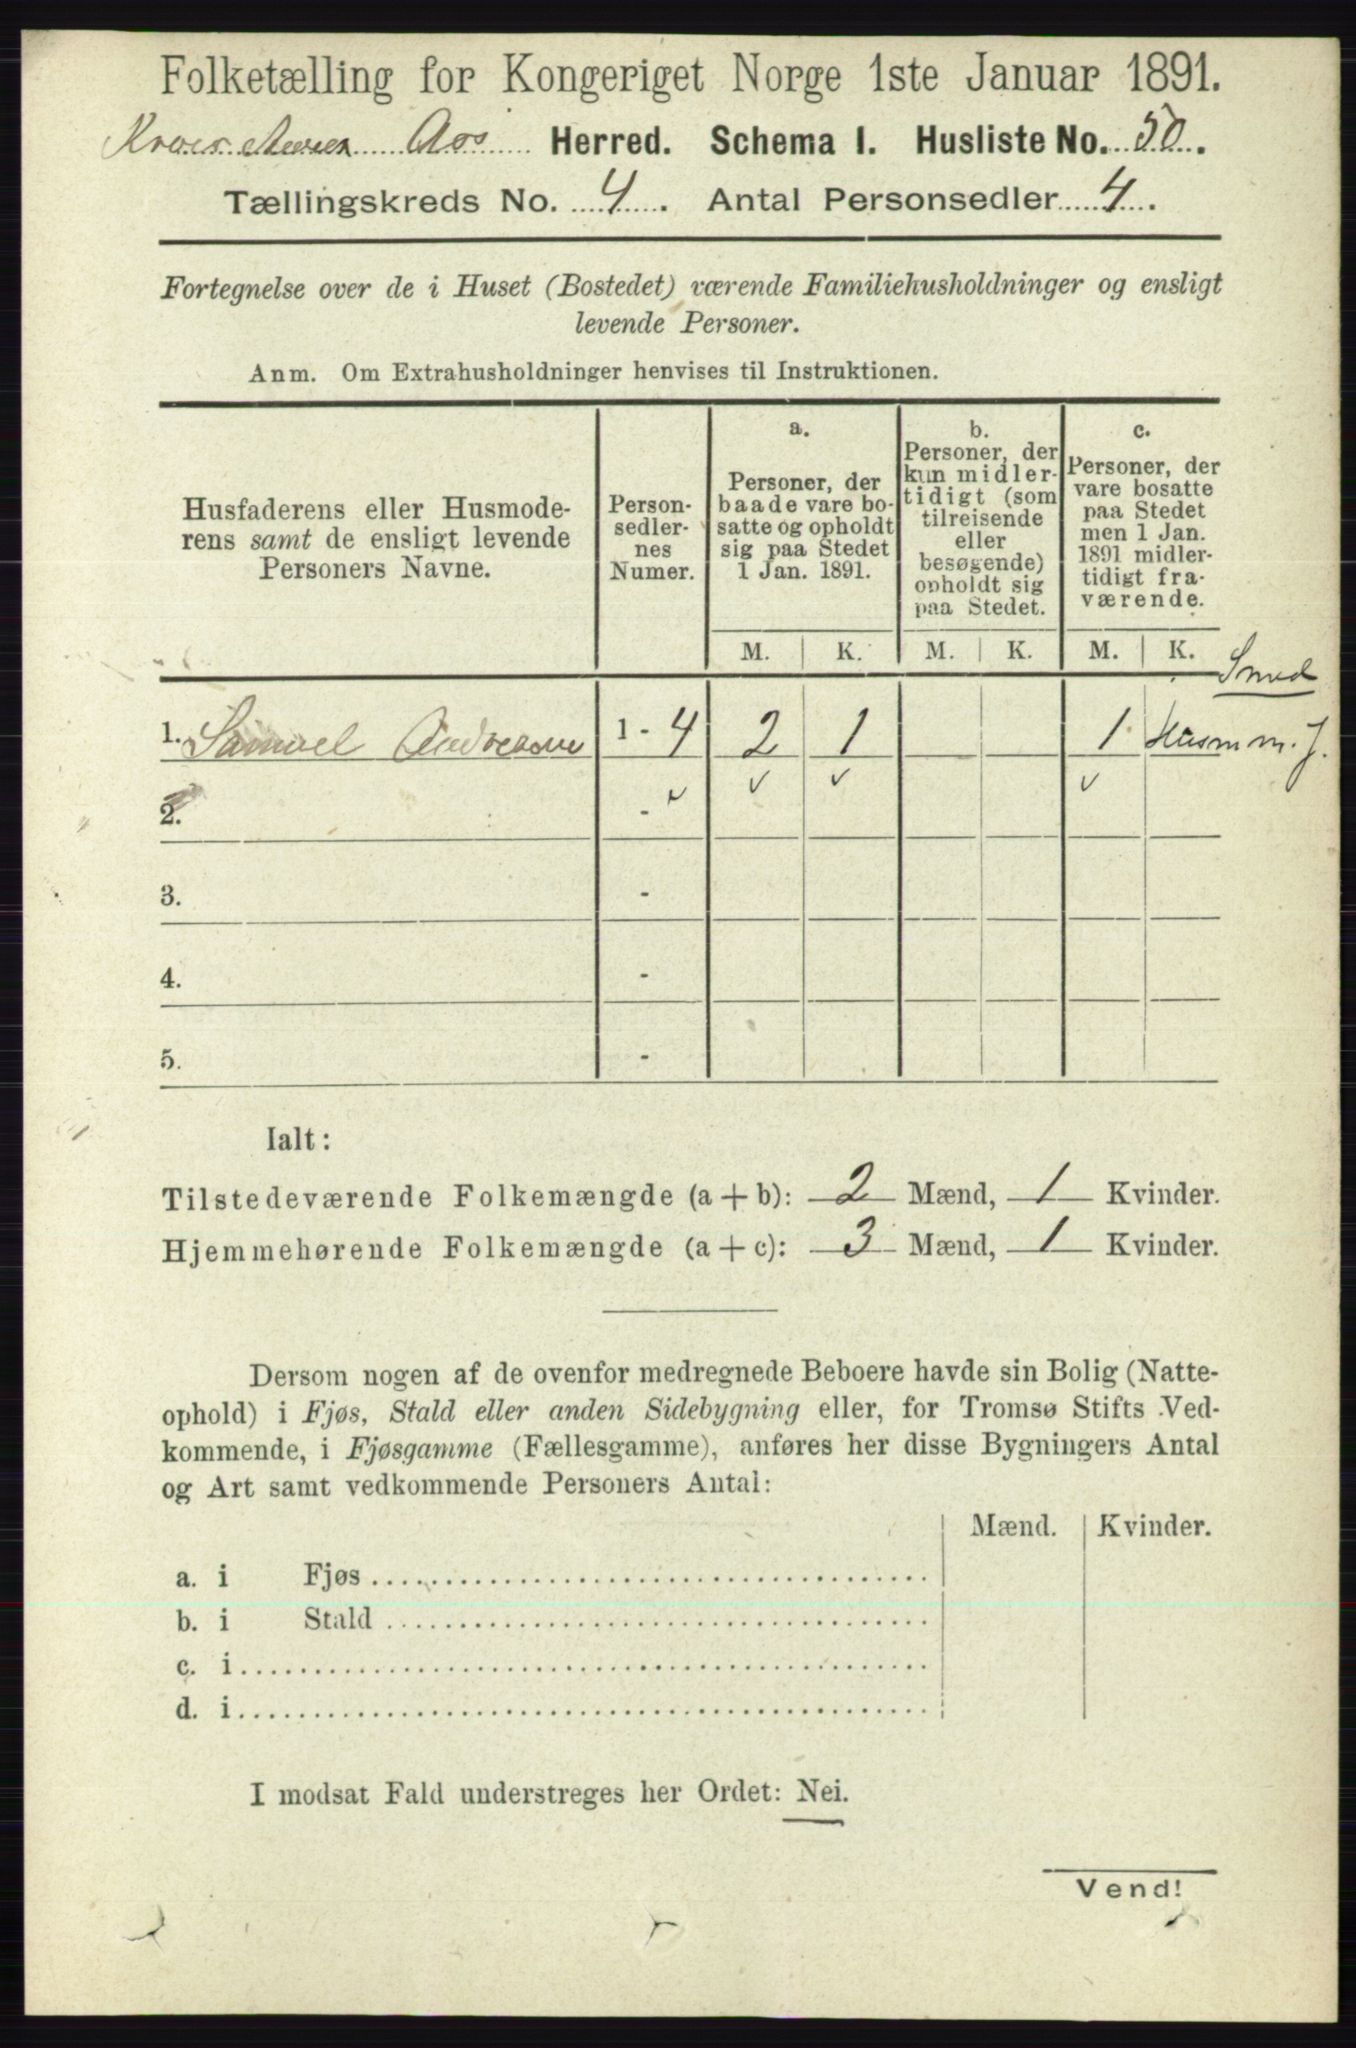 Folketælling for Kongeriget Norge 1ste Januar 1891.
Aas Herred. Schema I. Husliste No. 50.
Tællingskreds No. 4. Antal Personsedler 4.
Fortegnelse over de i Huset (Bostedet) værende Familiehusholdninger og ensligt
levende Personer.
Anm. Om Extrahusholdninger henvises til Instruktionen.
Husfaderens eller Husmode-
rens samt de ensligt levende
Personers Navne.
Person-
sedler-
nes
Numer.
a.
Personer, der
baade vare bo-
satte og opholdt
sig paa Stedet
1 Jan. 1891.
b.
Personer, der
kun midler-
tidigt (som
tilreisende
eller
besøgende)
opholdt sig
paa Stedet.
c.
Personer, der
vare bosatte
paa Stedet
men 1 Jan.
1891 midler-
tidigt fra-
værende.
M. K. M. K. M. K.
Smed
1. Samuel Andreasen 1 - 4 2 1 1 Husm m. J.
2. -
3. -
4. -
5. -
Ialt:
Tilstedeværende Folkemængde (a + b): 2 Mænd, 1 Kvinder.
Hjemmehørende Folkemængde (a + c): 3 Mænd, 1 Kvinder.
Dersom nogen af de ovenfor medregnede Beboere havde sin Bolig (Natte-
ophold) i Fjøs, Stald eller anden Sidebygning eller, for Tromsø Stifts Ved-
kommende, i Fjøsgamme (Fællesgamme), anføres her disse Bygningers Antal
og Art samt vedkommende Personers Antal:
Mænd. Kvinder.
a. i Fjøs
b. i Stald
c. i
d. i
I modsat Fald understreges her Ordet: Nei.
Vend!